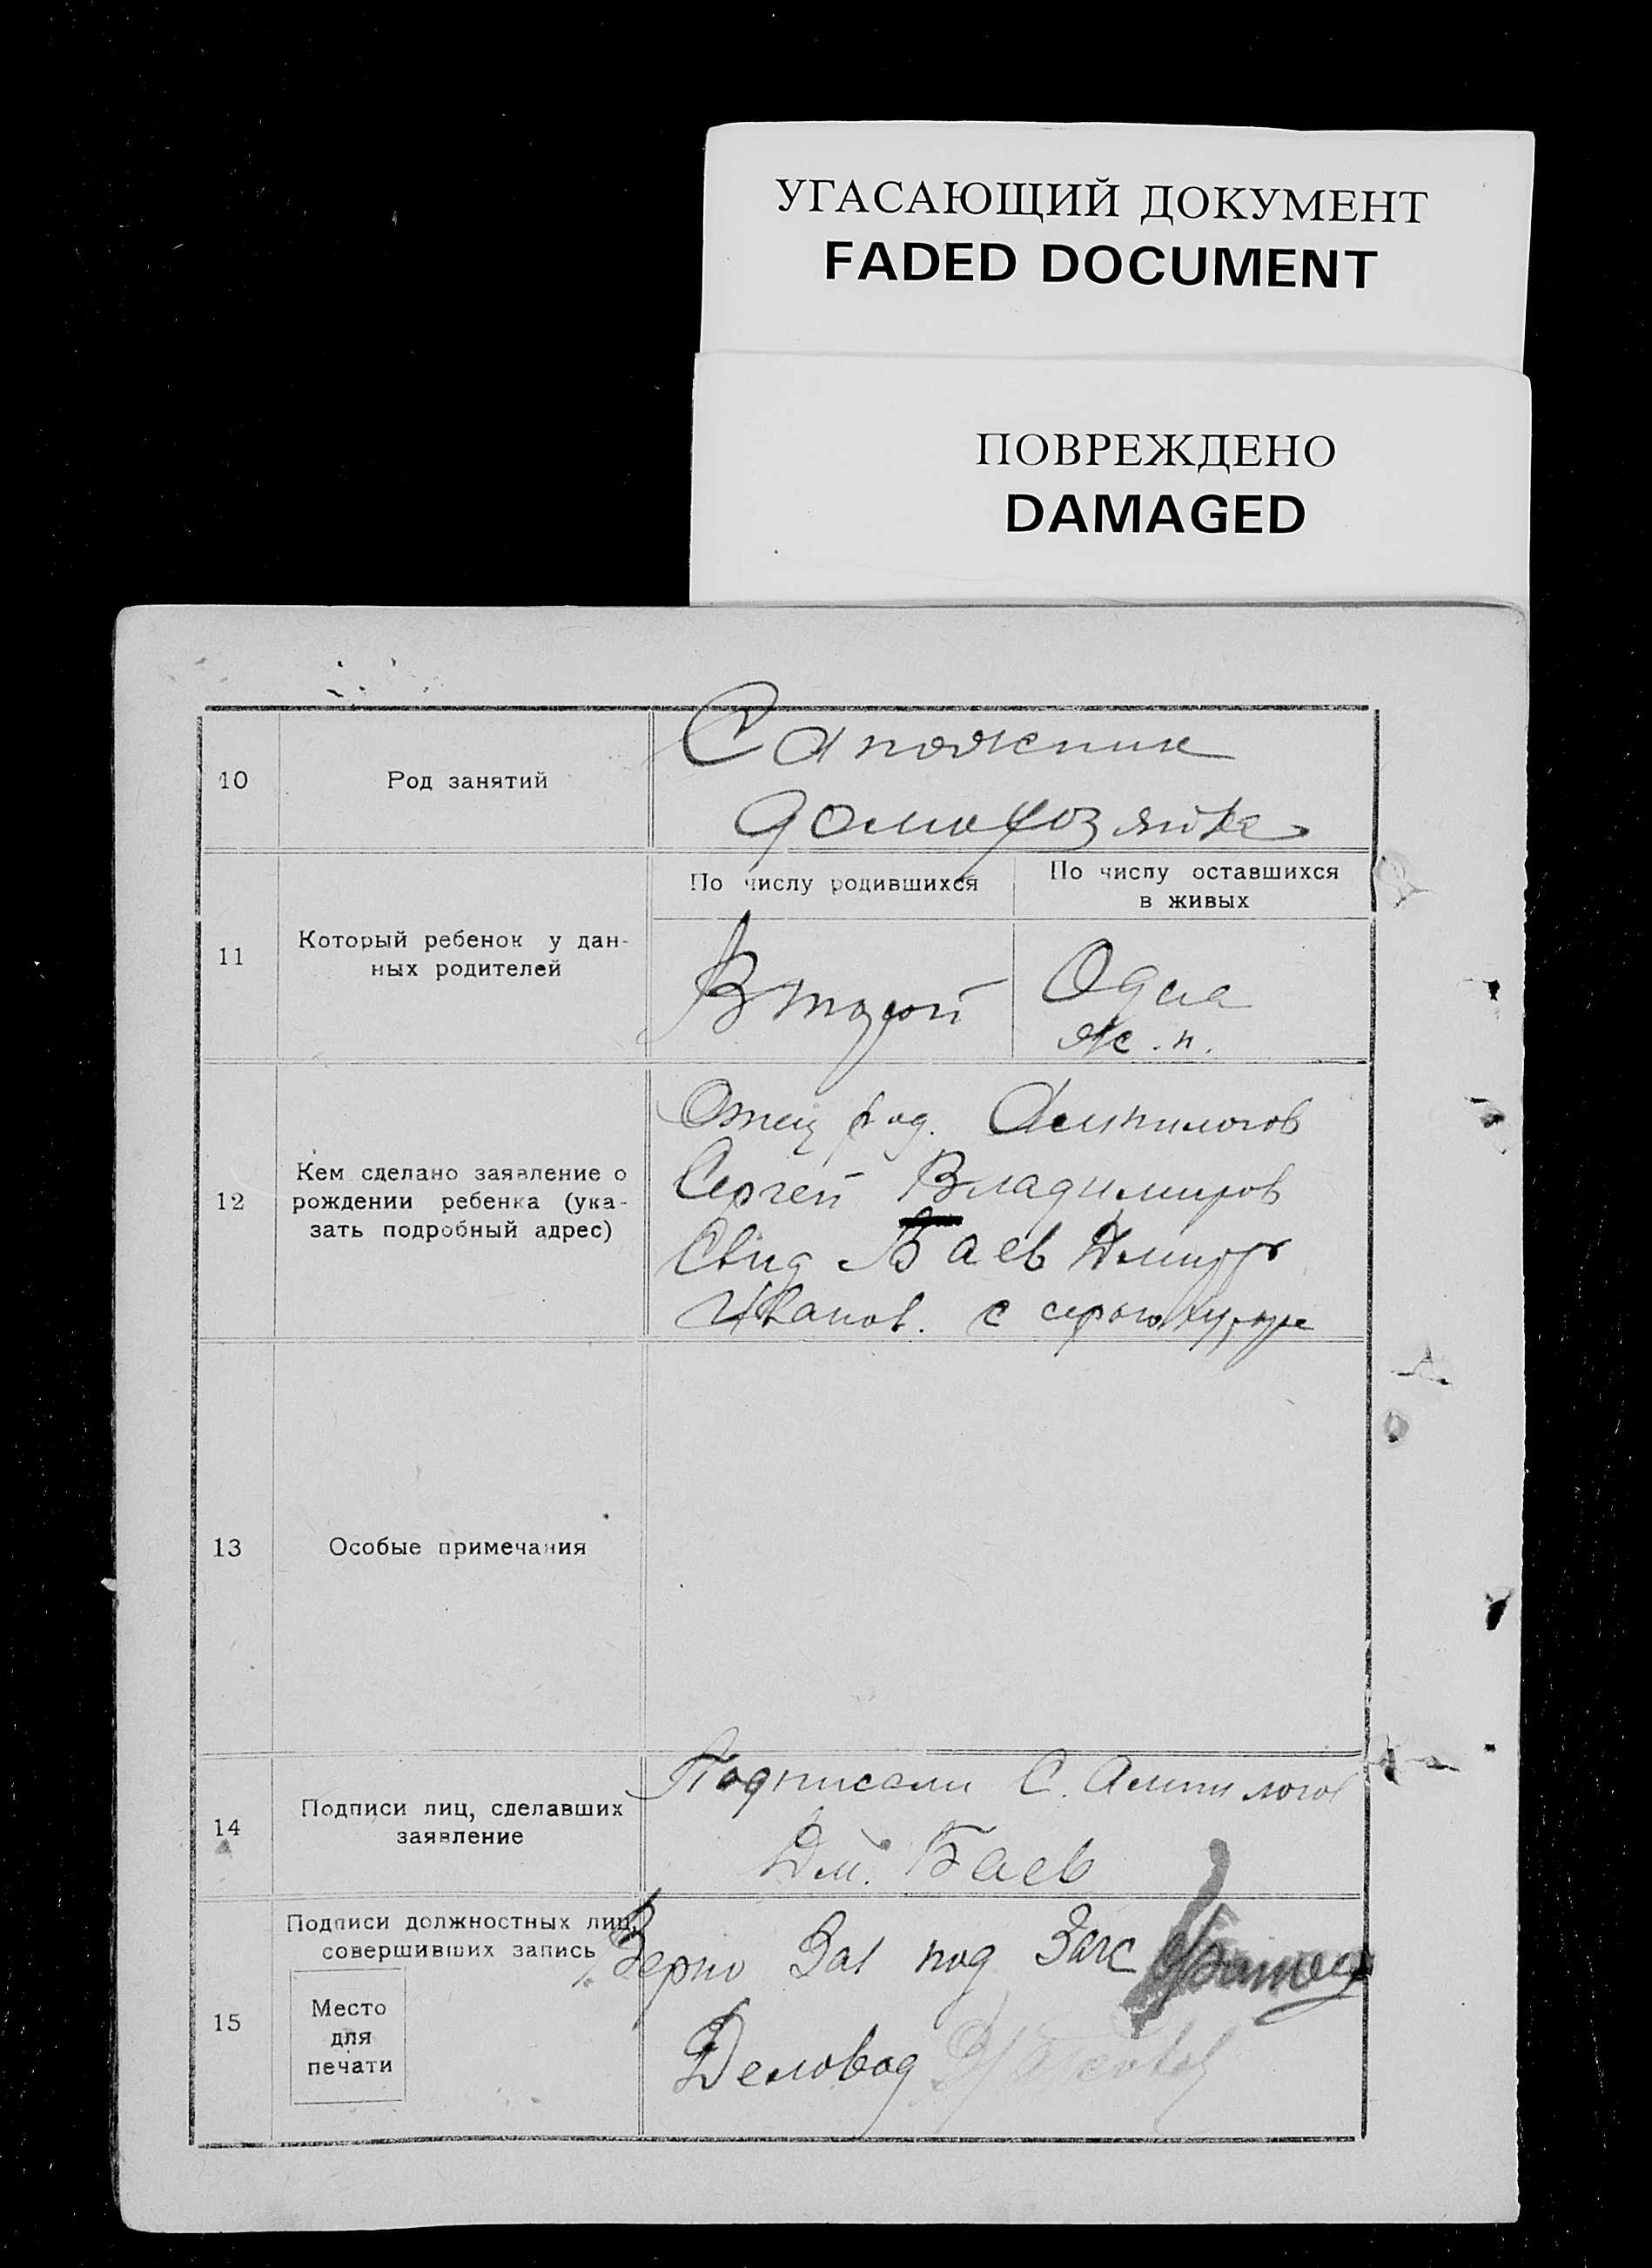 УГАСАЮЩИЙ ДОКУМЕНТ
FADED DOCUMENT
ПОВРЕЖДЕНО
DAMAGED
10
Род занятий
Сапожник
домохозяйка
11
Который ребенок у дан-
ных родителей
По числу родившихся
По числу оставшихся
в живых
Второй
Одна
ж.п.
12
Кем сделано заявление о
рождении ребенка (ука-
зать подробный адрес)
Отец род. Ампилогов
Сергей Владимиров
Свид Баев Дмитр
Иванов. с
13
Особые примечания
14
Подписи лиц, сделавших
заявление
Подписали С. Ампилогов
Дм. Баев
15
Подписи должностных лиц,
совершивших запись
Место
для
печати
Верно Зав под Загс
Деловод